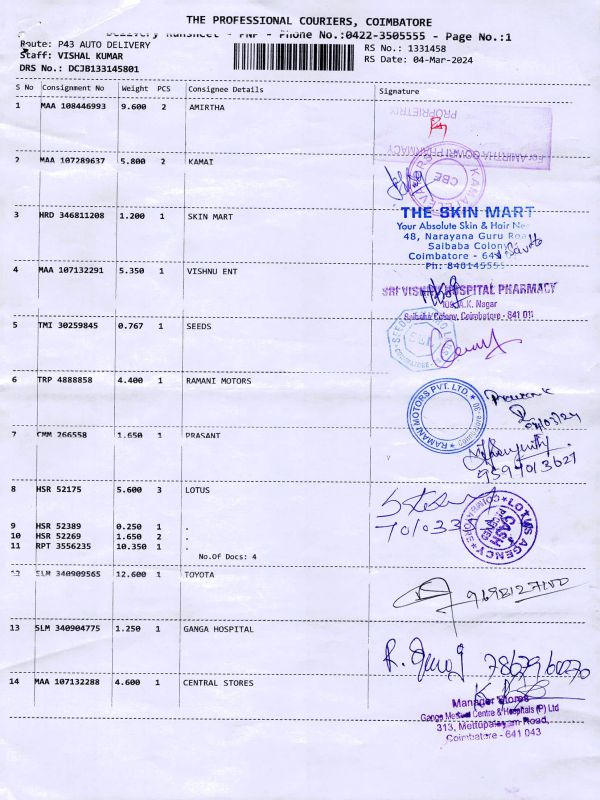 THE PROFESSIONAL COURIERS, COIMBATORE
Delivery Runsheet - PNP - Phone No.:0422-3505555 - Page No.:1
Route: P43 AUTO DELIVERY RS No.: 1331458
Staff: VISHAL KUMAR RS Date: 04-Mar-2024
DRS No.: DCJB133145801
S No Consignment No Weight PCS Consignee Details Signature
1 MAA 108446993 9.600 2 AMIRTHA
PROPRIETRIX
For AMIRTHA GOWRI PHARMACY
2 MAA 107289637 5.800 2 KAMAI
CBE
3 HRD 346811208 1.200 1 SKIN MART
THE SKIN MART
Your Absolute Skin & Hair
48, Narayana Guru Road
Saibaba Colony
Coimbatore - 641
4 MAA 107132291 5.350 1 VISHNU ENT
HOSPITAL PHARMACY
K. Nagar
Saibaba Colony, Coimbatore - 641 011
5 TMI 30259845 0.767 1 SEEDS
6 TRP 4888858 4.400 1 RAMANI MOTORS
RAMANI MOTORS PVT. LTD
7 CMM 266558 1.650 1 PRASANT
8 HSR 52175 5.600 3 LOTUS
701033
LOTUS AGENCY
COIMBATORE
CASH
9 HSR 52389 0.250 1 .
10 HSR 52269 1.650 2 .
11 RPT 3556235 10.350 1 .
No.Of Docs: 4
12 SLM 340909565 12.600 1 TOYOTA
13 SLM 340904775 1.250 1 GANGA HOSPITAL
14 MAA 107132288 4.600 1 CENTRAL STORES
Manager Stores
Ganga Medical Centre & Hospitals (P) Ltd
313, Mettupalayam Road,
Coimbatore - 641 043